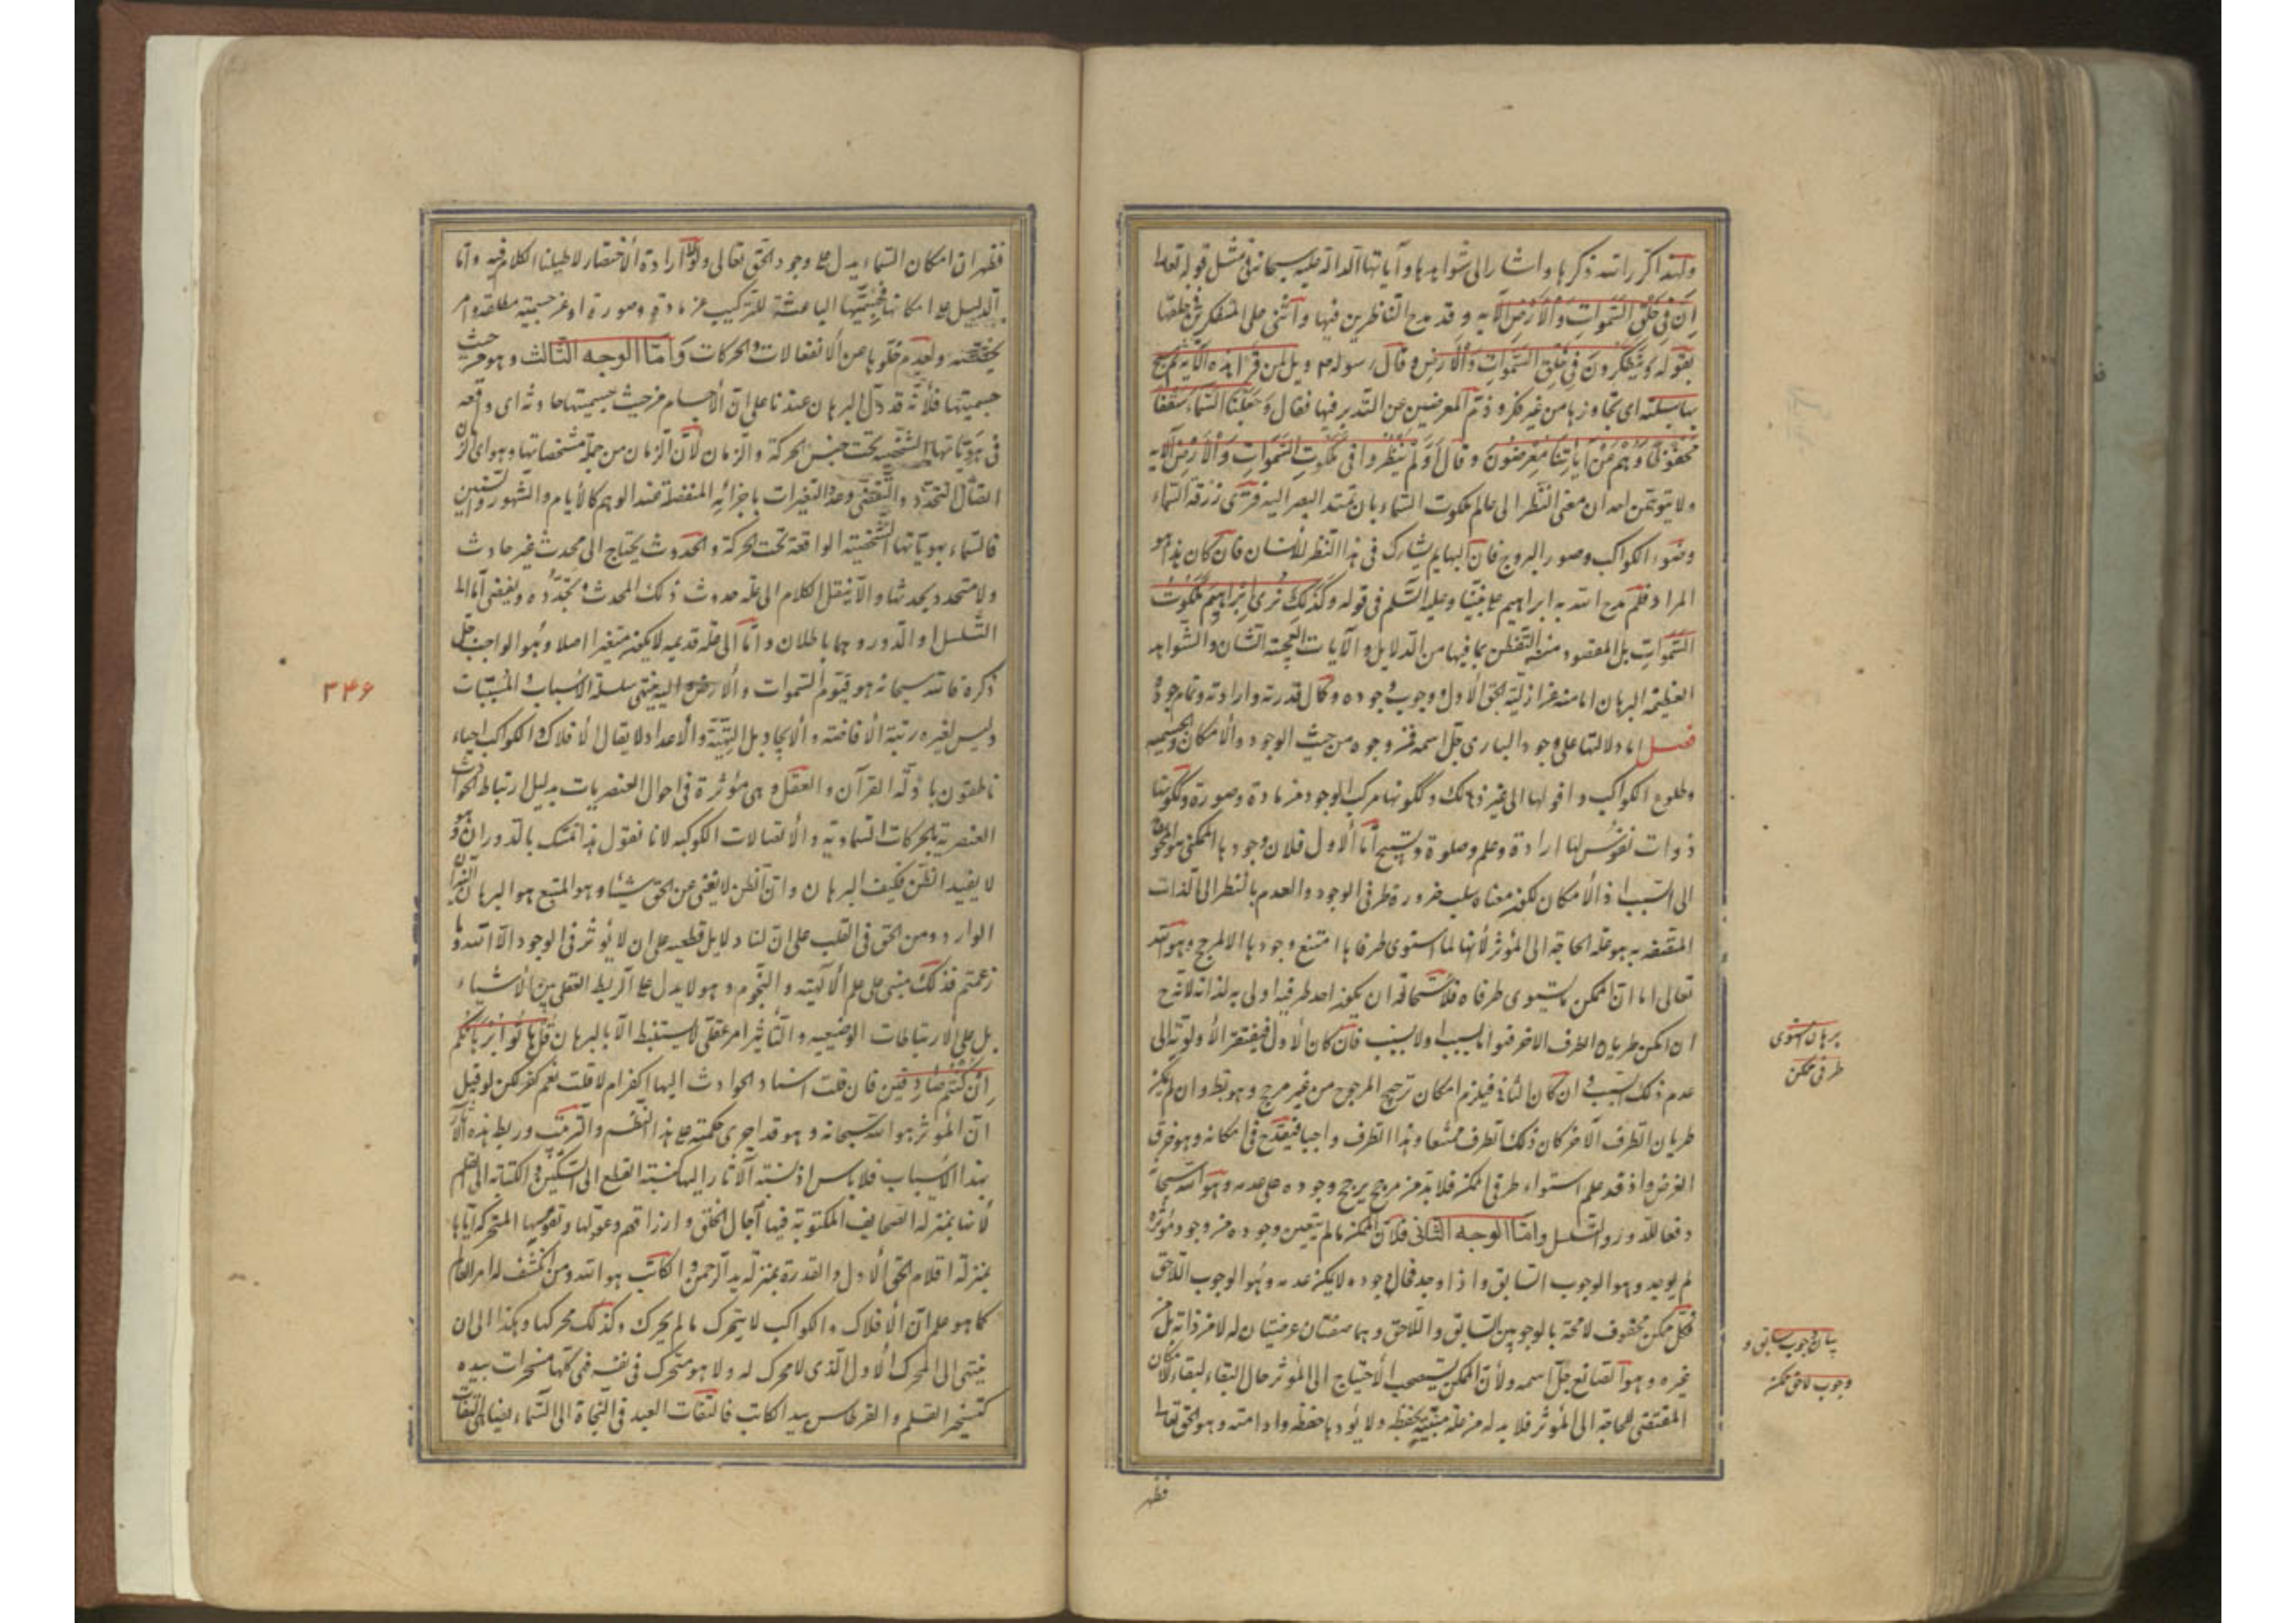 ولهذا كرر الله ذكرها واشار الى شواهدها وآياتها الدالة عليه سبحانه فى مثل قوله تعالى
اِنَّ فى خَلْقِ السَّمٰوَاتِ وَالْاَرْضِ الآيه و قد مدح الناظرين فيها وأثنى على المتفكرين فى خلقها
بقوله وَيَتَفَكَّرُونَ فى خَلْقِ السَّمٰوَاتِ وَالْاَرْضِ وقال رسوله ويل لمن قرأ هذه الآية ثم مسح
بها سبلته اى تجاوزها من غير فكر وذم المعرضين عن التدبر فيها فقال وَجَعَلْنَا السَّمَاءَ سَقْفًا
مَحْفُوظًا وَهُمْ عَنْ آيَاتِنَا مُعْرِضُونَ وقال اَوَلَمْ يَنْظُرُوا فى مَلَكُوتِ السَّمٰوَاتِ وَالْاَرْضِ الآيه
ولا يتوهمن احد ان معنى النظر الى عالم ملكوت السماء بان تمتد البصر اليه فترى زرقة السماء
وضوء الكواكب وصور البروج فان البهايم يشارك فى هذا النظر للأنسان فان كان هذا هو
المراد فلم مدح الله به ابراهيم على نبينا وعليه السلم فى قوله وَكَذٰلِكَ نُرِى اِبْرَاهِيمَ مَلَكُوتَ
السَّمٰوَاتِ بل المقصود منه التفطن بما فيها من الدلايل والآيات العجيبة الشان والشواهد
العظيمة البرهان الى ازلية الحق الاول ووجوب وجوده وكمال قدرته وارادته وتمام جوده
فصل اما دلالتها على وجود البارى جل اسمه فمن وجوه من حيث الوجود والامكان والجسمية
وطلوع الكواكب وافولها الى غير ذلك وككونها مركب الوجود من مادة وصورة وككونها
ذوات نفوس لها ارادة وعلم وصلوة وتسبيح أما الاول فلان وجودها الممكنى هو المحوج
الى السبب اذ الأمكان لكون معناه سلب ضرورة طرفى الوجود والعدم بالنظر الى الذات
المتصفه به هو علة الحاجة الى المؤثر لأنها لما استوى طرفاها امتنع وجودها الا لمرجح وهو الله
تعالى اما ان الممكن يستوى طرفاه فلاستحالة ان يكون احد طرفيه اولى به لذاته لانه ح
ان امكن طريان الطرف الاخر فاما بسبب او لا بسبب فان كان الأول فيفتقر الأولوية الى
عدم ذلك السبب و ان كان الثانى فيلزم امكان ترجيح المرجوح من غير مرجح وهو بط وان لم يكن
طريان الطرف الآخر كان ذلك الطرف ممتنعا وهذا الطرف واجبا فيقدح فى امكانه وهو خرق
الفرض واذ قد علم استواء طرفى الممكن فلابد من مرجح يرجح وجوده على عدمه وهو الله سبحانه
دفعا للدور والتسلسل وامّا الوجه الثانى فلان الممكن ما لم يتعين وجوده من وجود مؤثره
لم يوجد وهو الوجوب السابق واذا وجد فحال وجوده لا يمكن عدمه وهو الوجوب اللاحق
فكل ممكن محفوف لا محة بالوجوبين السابق واللاحق وهما صفتان عرضيتان له لا من ذاته بل من
غيره وهو الصانع جل اسمه ولأن الممكن يستصحب الأحتياج الى المؤثر حال البقاء لبقاء الامكان
المقتضى للحاجة الى المؤثر فلابد له من علة مبقية يحفظه ولا يؤدها حفظه وادامته وهو الحق تعالى
فظهر
برهان استوى
طرفى ممكن
بيان وجوب سابق و
وجوب لاحق ممكن
فظهر ان امكان السماء يدل على وجود الحق تعالى ولولا ارادة الأختصار لاطلنا الكلام فيه واما
الدليل على امكانها فجسميتها الباعثة للتركيب من مادة وصورة او من جسمية مطلقة وامر
يخصصه ولعدم خلوها عن الأنفعالات والحركات وَامّا الوجه الثالث وهو من حيث
جسميتها فلأنه قد دل البرهان عندنا على ان الأجسام من حيث جسميتها حادثة اى واقعة
فى هوياتها الشخصية تحت جنس الحركة والزمان لأن الزمان من جملة مشخصاتها وهو اى الزمان
اتصال التجدد والتقضى وعدد التغيرات باجزائه المنفصلة عند الوهم كالأيام والشهور والسنين
فالسماء بهوياتها الشخصية الواقعة تحت الحركة والحدوث يحتاج الى محدث غير حادث
ولا متجدد يحدثها والا ينقل الكلام الى علة حدوث ذلك المحدث وتجدده ويفضى اما الى
التسلسل او الدور وهما باطلان واما الى علة قديمه لا يكون متغيرا اصلا وهو الواجب جل
ذكره فالله سبحانه هو قيوم السموات والارض اليه ينتهى سلسلة الاسباب والمسببات
وليس لغيره رتبة الأفاضة والأيجاد بل التهيئة والأعداد لا يقال الأفلاك والكواكب احياء
ناطقون بادلة القرآن والعقل وهى مؤثرة فى احوال العنصريات بدليل ارتباط الحوادث
العنصرية بالحركات السماوية والأتصالات الكوكبية لانا نقول هذا تمسك بالدوران وهو
لا يفيد الظن فكيف البرهان وان الظن لا يغنى من الحق شيئا وهو المتبع هو البرهان
الوارد ومن الحق فى القلب على ان لنا دلايل قطعيه على ان لا يؤثر فى الوجود الا الله وما
زعمتم فذلك مبنى على علم الأهيّة والنجوم وهو لا يدل على الربط العقلى بين الأشياء
بل على الارتباطات الوضعيه والتأثير امر عقلى لا يستنبط الا بالبرهان قُلْ هَاتُوا بُرْهَانَكُمْ
اِنْ كُنْتُمْ صَادِقِينَ فان قلت اسناد الحوادث اليها اكفر ام لا قلت نعم كفر لكن لو قيل
ان المؤثر هو الله سبحانه وهو قد اجرى حكمته على هذا النظم والترتيب وربط هذه الآثار
بهذا الأسباب فلا باس اذ نسبة الآثار اليها كنسبة القطع الى السكين والكتابة الى القلم
لأنها بمنزلة الصحايف المكتوبة فيها آجال الخلق وارزاقهم وعقولها ونفوسها المتحركة اياها
بمنزلة اقلام الحق الأول والقدرة بمنزلة يد الرحمن والكاتب هو الله ومن انكشف له امر العالم
كما هو علم ان الأفلاك والكواكب لا يتحرك ما لم يحرك وكذلك محركها وهكذا الى ان
ينتهى الى المحرك الأول الذى لا محرك له ولا هو متحرك فى نفسه فهى كلها مسخرات بيده
كتسخير القلم والقرطاس بيد الكاتب فالتفات العبد فى النجاة الى السماء يضاهى التفات
٣٤۶